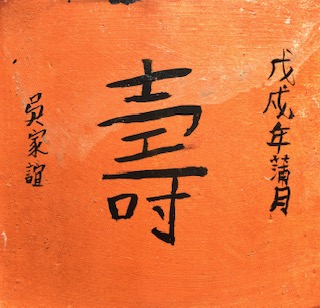 戊戌年蒲月
壽
吳家誼